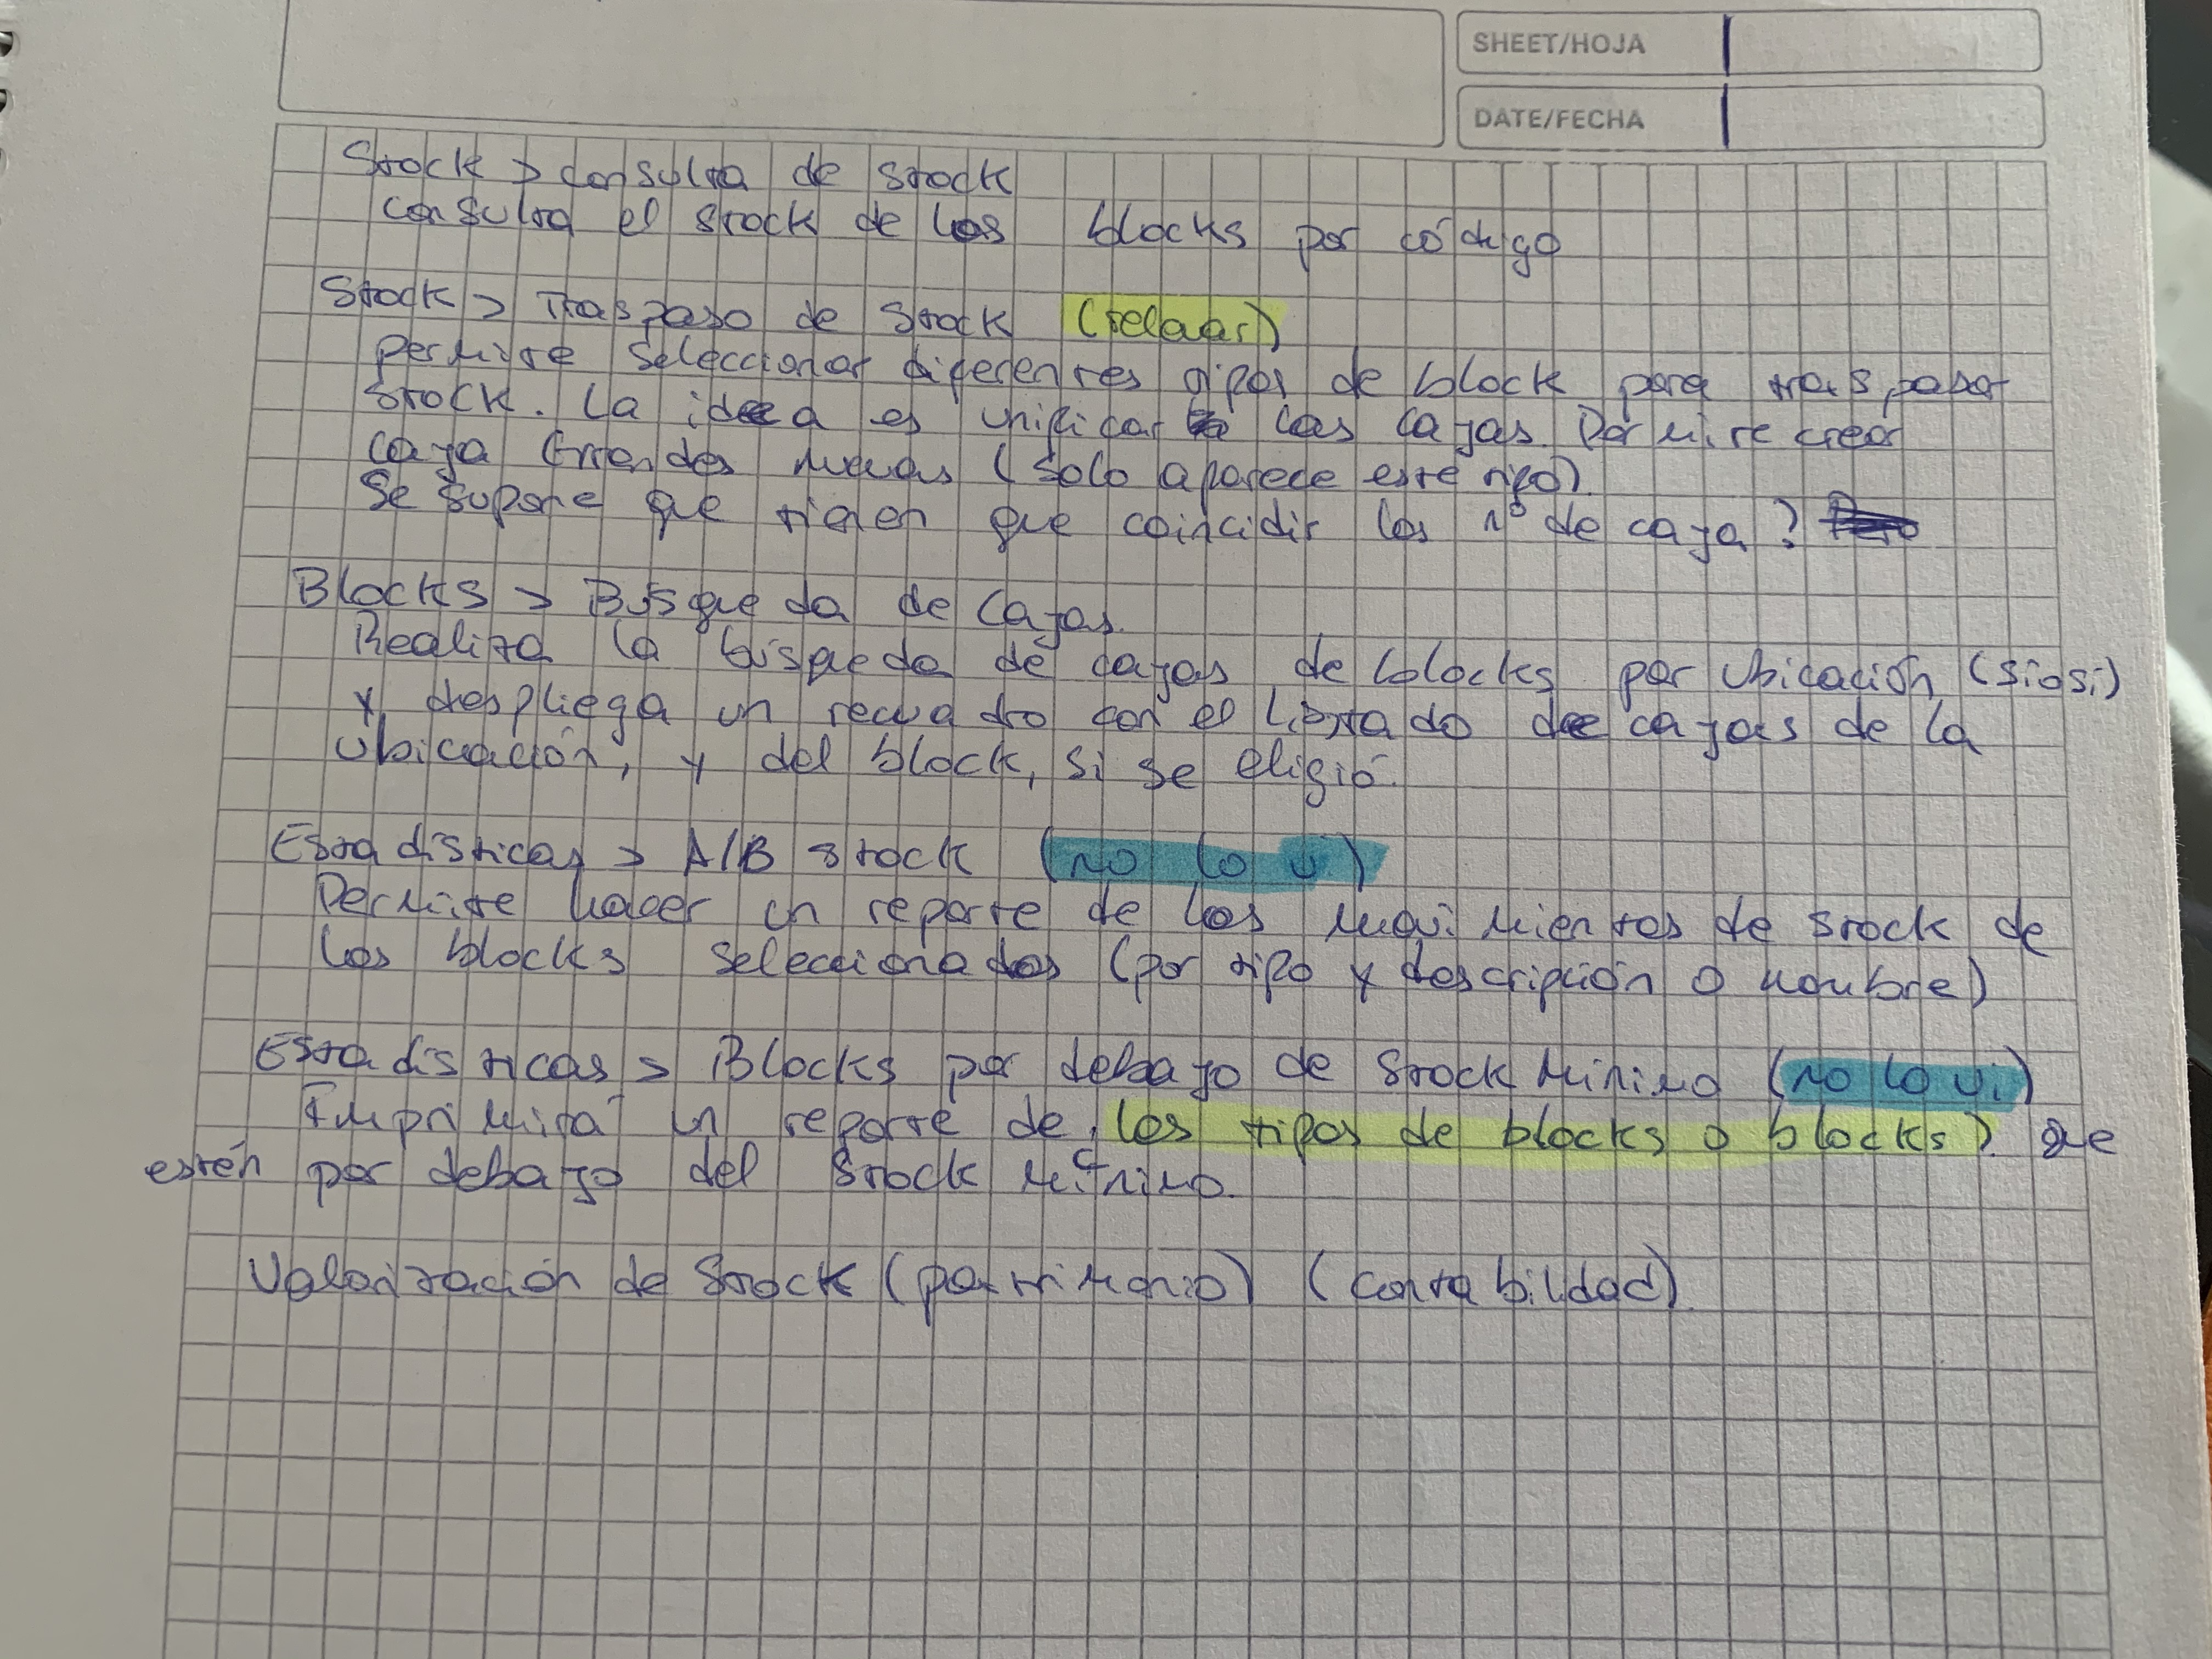 SHEET/HOJA
DATE/FECHA
Stock > consulta de stock
consulta el stock de los blocks por código
Stock > Traspaso de Stock (relevar)
permite seleccionar diferentes tipos de block para traspasar
stock. La idea es unificar las cajas. Permite crear
caja Grandes nuevas (solo aparece este tipo).
Se supone que tienen que coincidir los nº de caja?
Blocks > Búsqueda de Cajas.
Realiza la búsqueda de cajas de blocks por ubicación (si o si)
y despliega un recuadro con el listado de cajas de la
ubicación, y del block, si se eligió.
Estadísticas > A/B stock (no lo vi)
Permite hacer un reporte de los movimientos de stock de
los blocks seleccionados (por tipo y descripción o nombre)
Estadísticas > Blocks por debajo de Stock Mínimo (no lo vi)
Imprimirá un reporte de los tipos de blocks o blocks) que
estén por debajo del stock mínimo.
Valorización de Stock (patrimonio) (contabilidad)